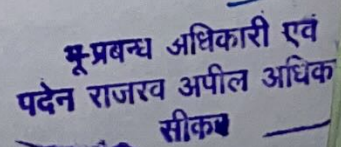 भू-प्रबन्ध अधिकारी एवं
पदेन राजस्व अपील अधिक
सीकर